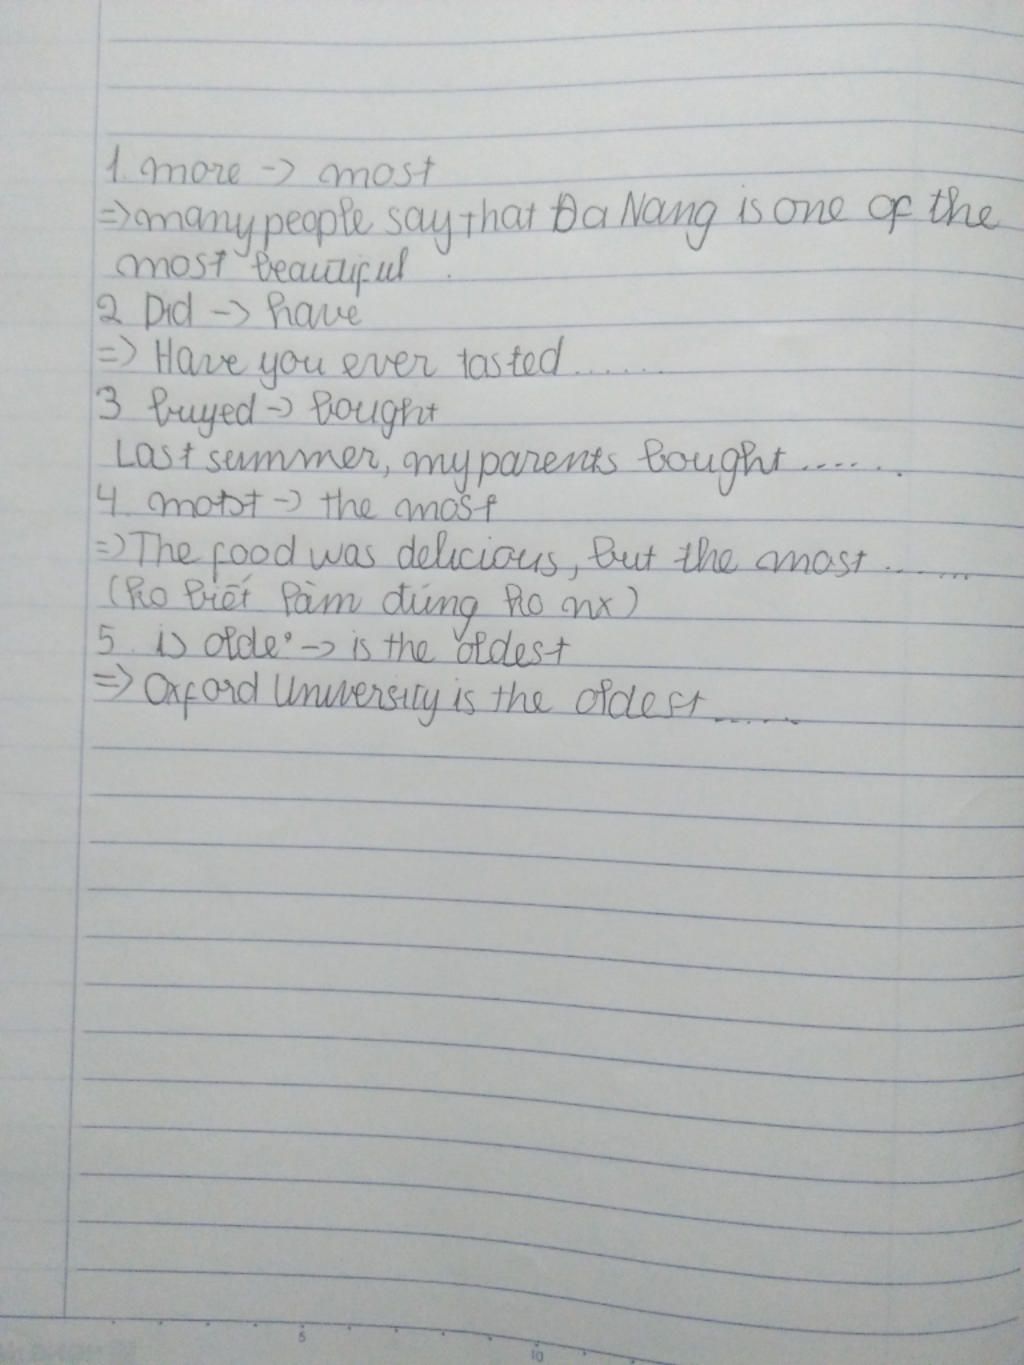 1. more -> most
=> many people say that Đa Nang is one of the
most beautiful .
2 Did -> have
=> Have you ever tasted.......
3 buyed -> bought
Last summer, my parents bought.......
4. most -> the most
=> The food was delicious, but the most.......
(ko biết làm đúng ko nx)
5. is older -> is the oldest
=> Oxford University is the oldest.......
5
10